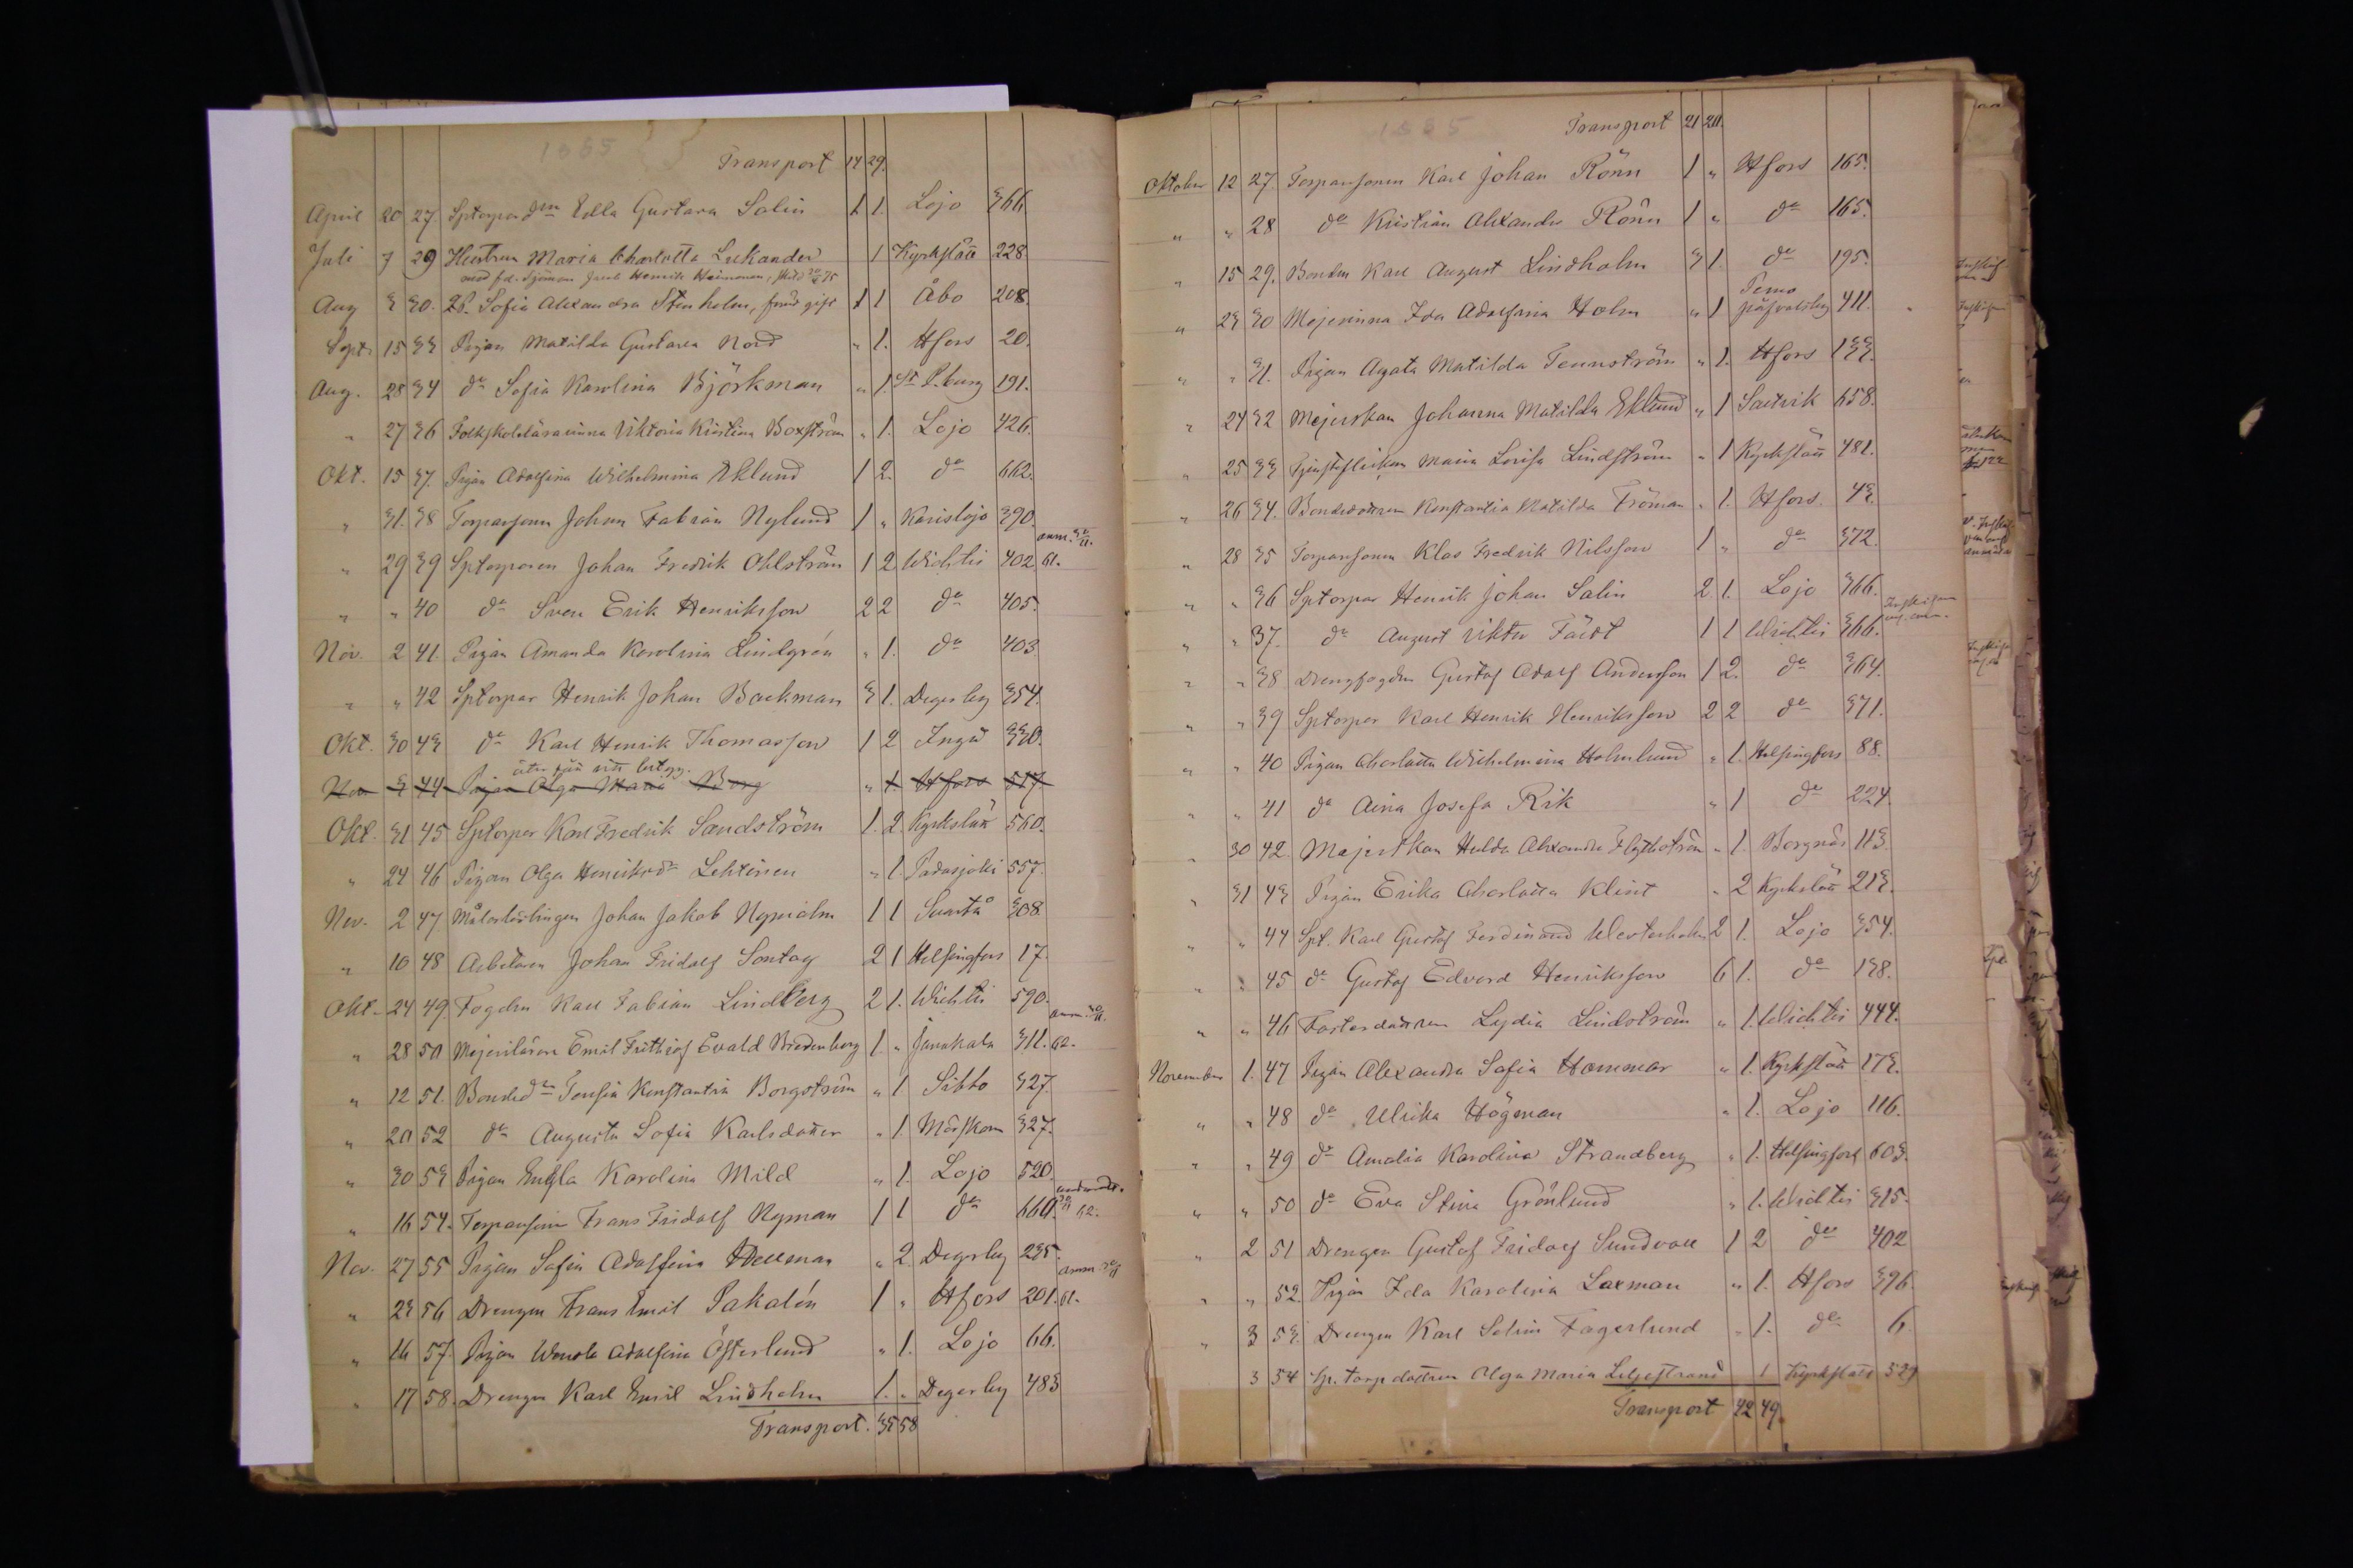 1885
Transport 14 29.
April 20 27. Sptorpared:n Edla Gustava Salin 1 1. Lojo 366.
Juli 7 29 Hustrun Maria Charlotta Lukander 1 Kyrkslätt 228.
med f.d. Sjöman Jacob Henrik Heinonen
Aug 3 30. Sofia Alexandra Stenholm, frånd gift 1 1 Åbo 208.
Sept. 15 33 Pigan Matilda Gustava Nord " 1. Hfors 20.
Aug. 28 34 do Sofia Karolina Björkman " 1. St P.burg 191.
" 27 36 Folkskolelärarinna Viktoria Kristina Boxström " 1. Lojo 426.
Okt. 15 37. Pigan Adolfina Wilhelmina Eklund 1 2. do 662.
" 31. 38 Torparsonen Johan Fabian Nylund 1 " Karislojo 390.
" 29 39 Sptorparen Johan Fredrik Ohlström 1 2 Wichtis 402. 61.
" " 40 do Sven Erik Henriksson 2 2 do 405.
Nov. 2 41. Pigan Amanda Karolina Lindgrén " 1. do 403.
" " 42 Sptorpar Henrik Johan Backman 3 1. Degerby 354.
Okt. 30 43 do Karl Henrik Thomasson 1 2 Ingå 330.
Nov 3 44 Pigan Olga Maria Berg " 1. Hfors 517.
Okt. 31 45 Sptorpar Karl Fredrik Sandström 1. 2. Kyrkslätt 560.
" 24 46 Pigan Olga Henriksdr Lehtinen " 1 Padasjoki 557.
Nov. 2 47 Målarlärlingen Johan Jakob Nyholm 1 1 Svartå 308.
" 10 48 Arbetaren Johan Fridolf Sontag 2 1 Helsingfors 17.
Okt. 24 49. Fogden Karl Fabian Lindberg 2 1. Wichtis 590.
" 28 50 Mejeriläraren Emil Frithiof Evald Bredenberg 1. " Janakala 311. 62.
" 12 51. Bonded:n Konstantia Borgström " 1 Sibbo 327.
" 20 52 do Augusta Sofia Karlsdotter " 1. Mörskom 327.
" 30 53 Pigan Engla Karolina Mild " 1. Lojo 520.
" 16 54. Torparsonen Frans Fridolf Nyman 1 1 do 660. 62.
Nov. 27 55 Pigan Sofia Adolfina Hellman " 2. Degerby 235.
" 23 56 Drengen Frans Emil Sakalén 1 " Hfors 201. 61.
" 16 57. Pigan Wendla Adolfina Österlund " 1. Lojo 66.
" 17 58. Drengen Karl Emil Lindholm 1. " Degerby 483
Transport. 35 58
1885
Transport 21 20.
Oktober 12 27. Torparsonen Karl Johan Rönn 1 " Hfors 165.
" " 28 do Kristian Alexander Rönn 1 " do 165.
" 15 29. Bonden Karl August Lindholm 3 1. do 195.
" 23 30 Mejerinna Ida Adolfina Holm " 1 Perno 411.
" " 31. Pigan Agata Matilda Tennström " 1. Hfors 133.
" 24 32 Mejerskan Johanna Matilda Eklund " 1 Saltvik 658.
" 25 33 Tjensteflickan Maria Lovisa Lindström " 1 Kyrkslätt 481.
" 26 34. Bondedottren Konstantia Matilda Fröman " 1. Hfors. 43.
" 28 35 Torparsonen Klas Fredrik Nilsson 1 " do 372.
" " 36 Sptorpar Henrik Johan Salin 2 1. Lojo 366.
" " 37. do August Viktor Färdt 1 1 Wichtis 366.
" " 38 Drengfogden Gustaf Adolf Andersson 1 2. do 364.
" " 39 Sptorpar Karl Henrik Henriksson 2 2 do 371.
" " 40 Pigan Charlotta Wilhelmina Holmlund " 1. Helsingfors 88.
" " 41 do Aina Josefa Rik " 1 do 224.
" 30 42. Mejerskan Hulda Alexandra Flythström " 1. Borgnäs 113.
" 31 43 Pigan Erika Charlotta Klint " 2 Kyrkslätt 213.
" " 44 Spt. Karl Gustaf Ferdinand Westerholm 2 1. Lojo 354.
" " 45 do Gustaf Edvard Henriksson 6 1. do 138.
" " 46 Fosterdottren Lydia Lindström " 1. Wichtis 444.
November 1. 47 Pigan Alexandra Sofia Hammar " 1. Kyrkslätt 173.
" " 48 do Ulrika Högman " 1. Lojo 116.
" " 49 do Amalia Karolina Strandberg " 1. Helsingfors 603.
" " 50 do Eva Stina Grönlund " 1. Wichtis 315.
" 2 51 Drengen Gustaf Fridolf Sundvall 1 2 do 402
" " 52. Pigan Ida Karolina Laxman " 1. Hfors 396.
" 3 53. Drengen Karl Selim Fagerlund " 1. do 6.
3 54 Sp.torpdottren Olga Maria Liljestrand 1 Kyrkslätt 529
Transport 42 49.